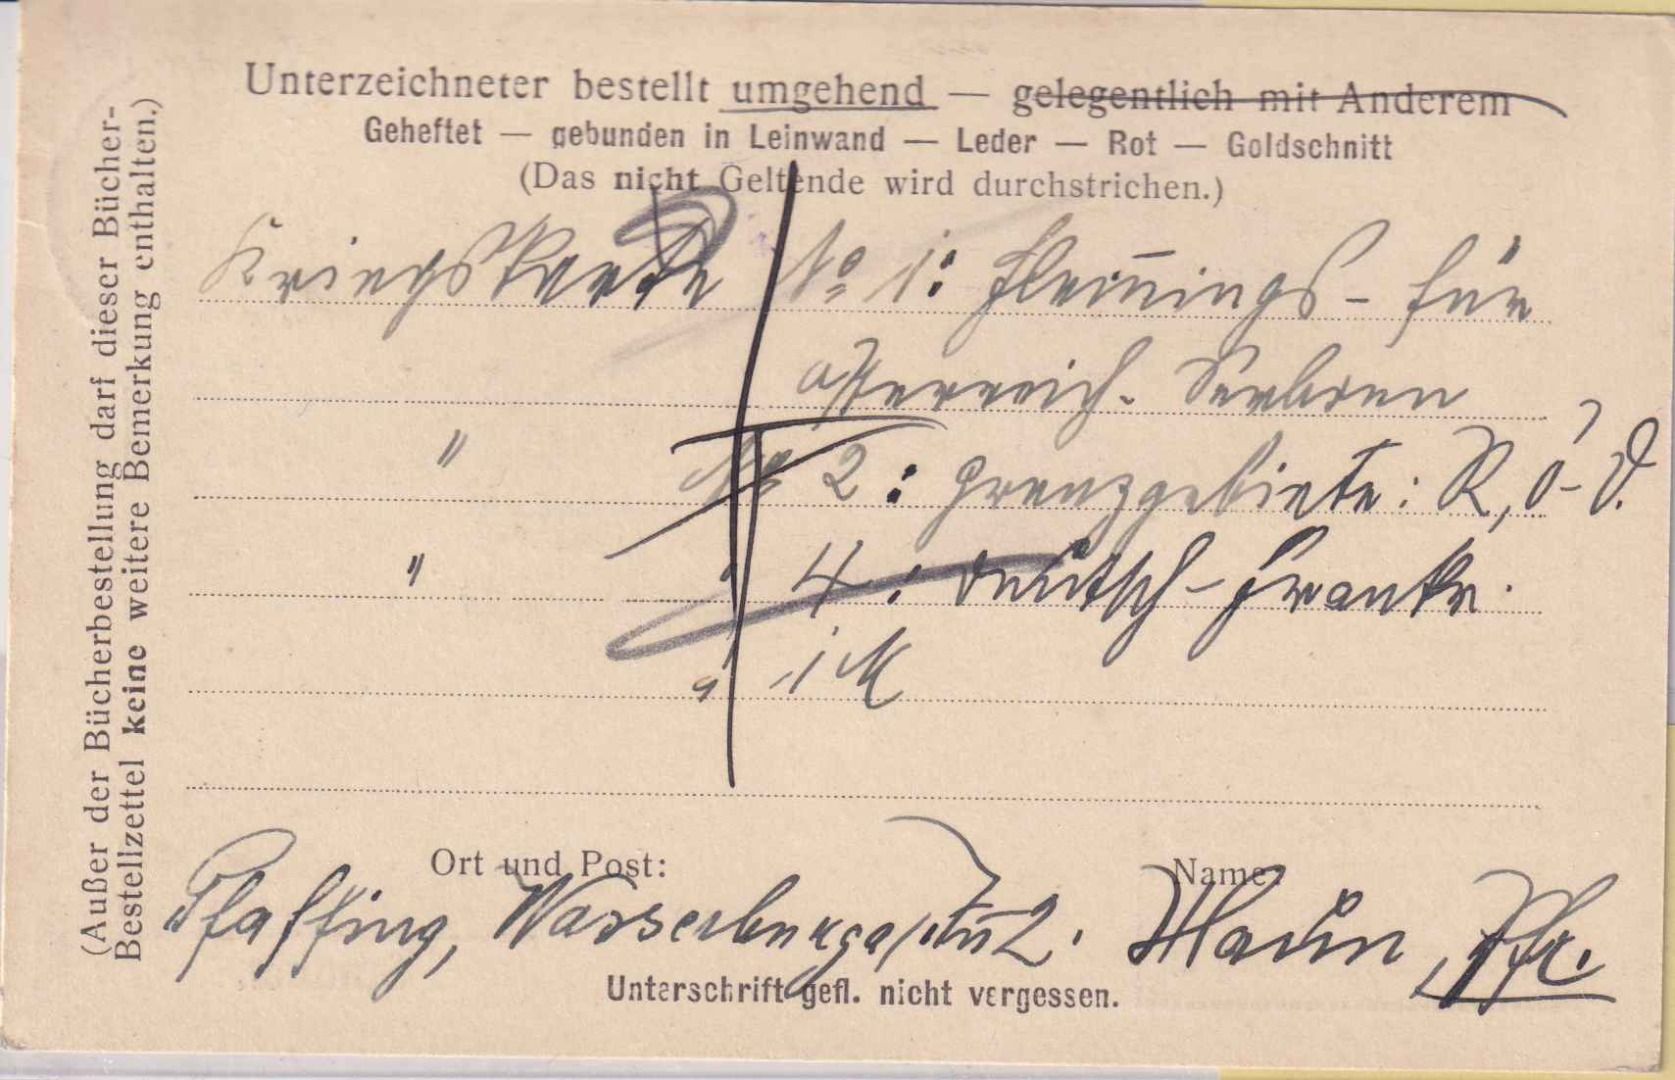 Unterzeichneter bestellt umgehend — gelegentlich mit Anderem
Geheftet — gebunden in Leinwand — Leder — Rot — Goldschnitt
(Das nicht Geltende wird durchstrichen.)
Kriegskarte No 1: Flemmings - für
Österreich - Serbien
" No 2: Grenzgebiete: R, Ö - D.
" " 4: Deutsch - Frankr.
(Außer der Bücherbestellung darf dieser Bücher-
Bestellzettel keine weitere Bemerkung enthalten.)
Ort und Post: Name:
Pfaffing, Wasserburg a/Inn 2. Pfr.
Unterschrift gefl. nicht vergessen.